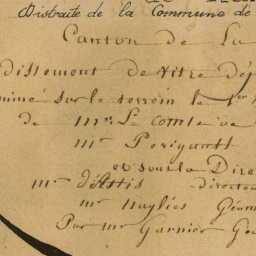 Distraite de la Commune de
Canton de La
dissement de Vitré Dép
miné sur le terrein le 1er
de Mr Le comte de
Mr Perigault
et sous la Dire
Mr d'Astis directeu
Mr Naylies Géom
Par Mr Garnier Géo